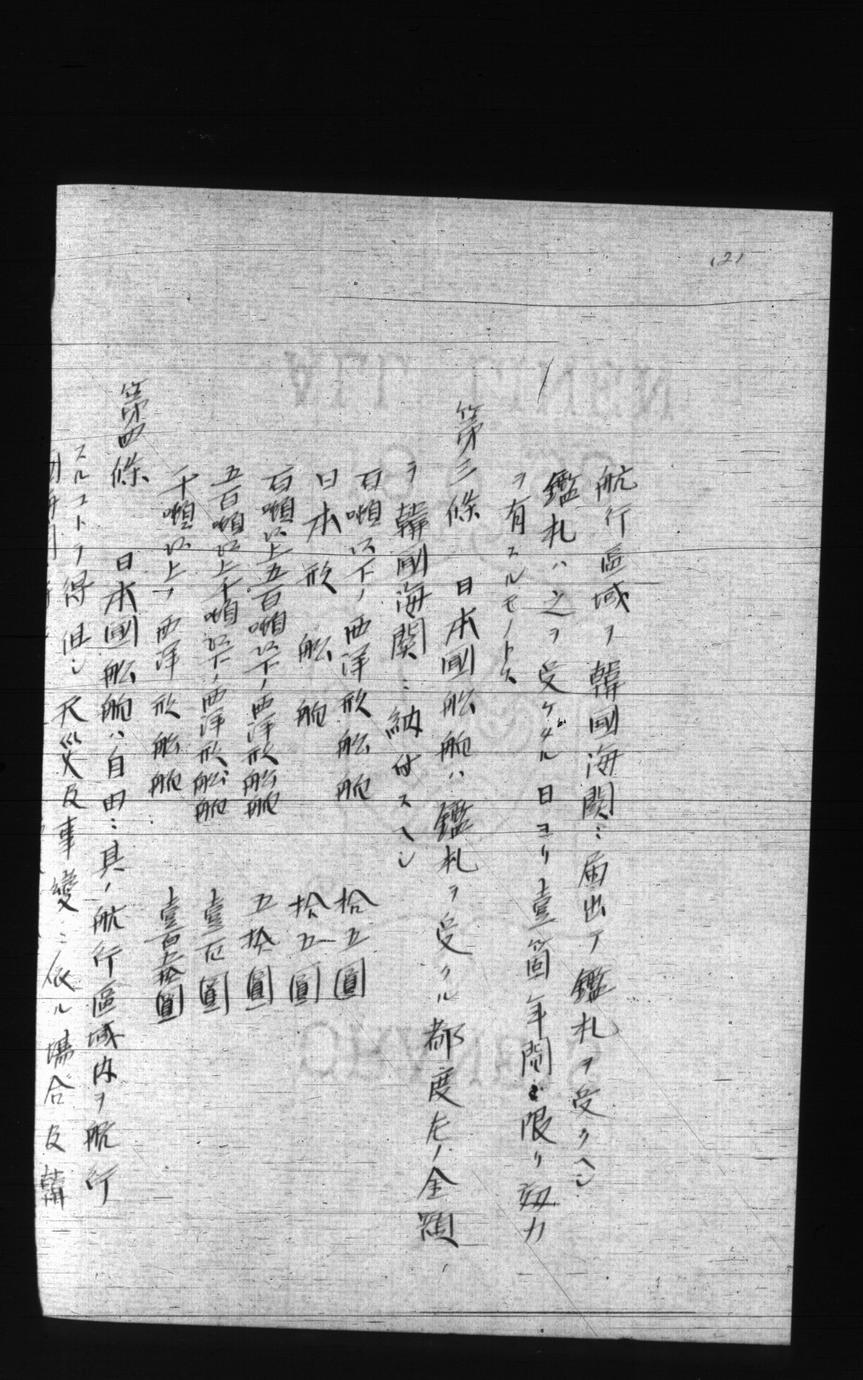 (2)
航行區域ヲ韓國海關ニ届出テ鑑札ヲ受クヘシ
鑑札ハ之ヲ受ケタル日ヨリ壹箇年間ヲ限リ効力
ヲ有スルモノトス
第三條 日本國船舶ハ鑑札ヲ受クル都度左ノ金額
ヲ韓國海關ニ納付スヘシ
百噸以下ノ西洋形船舶 拾五圓
日本形船舶 拾五圓
百噸以上五百噸以下ノ西洋形船舶 五拾圓
五百噸以上千噸以下ノ西洋形船舶 壹百圓
千噸以上ノ西洋形船舶 壹百五拾圓
第四條 日本國船舶ハ自由ニ其ノ航行區域内ヲ航行
スルコトヲ得但シ天災及事變ニ依ル場合及韓